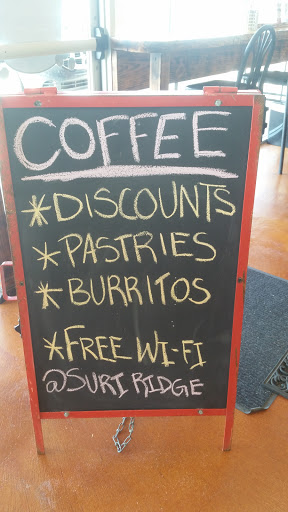 COFFEE
*DISCOUNTS
*PASTRIES
*BURRITOS
*FREE WI-FI
@SURF RIDGE